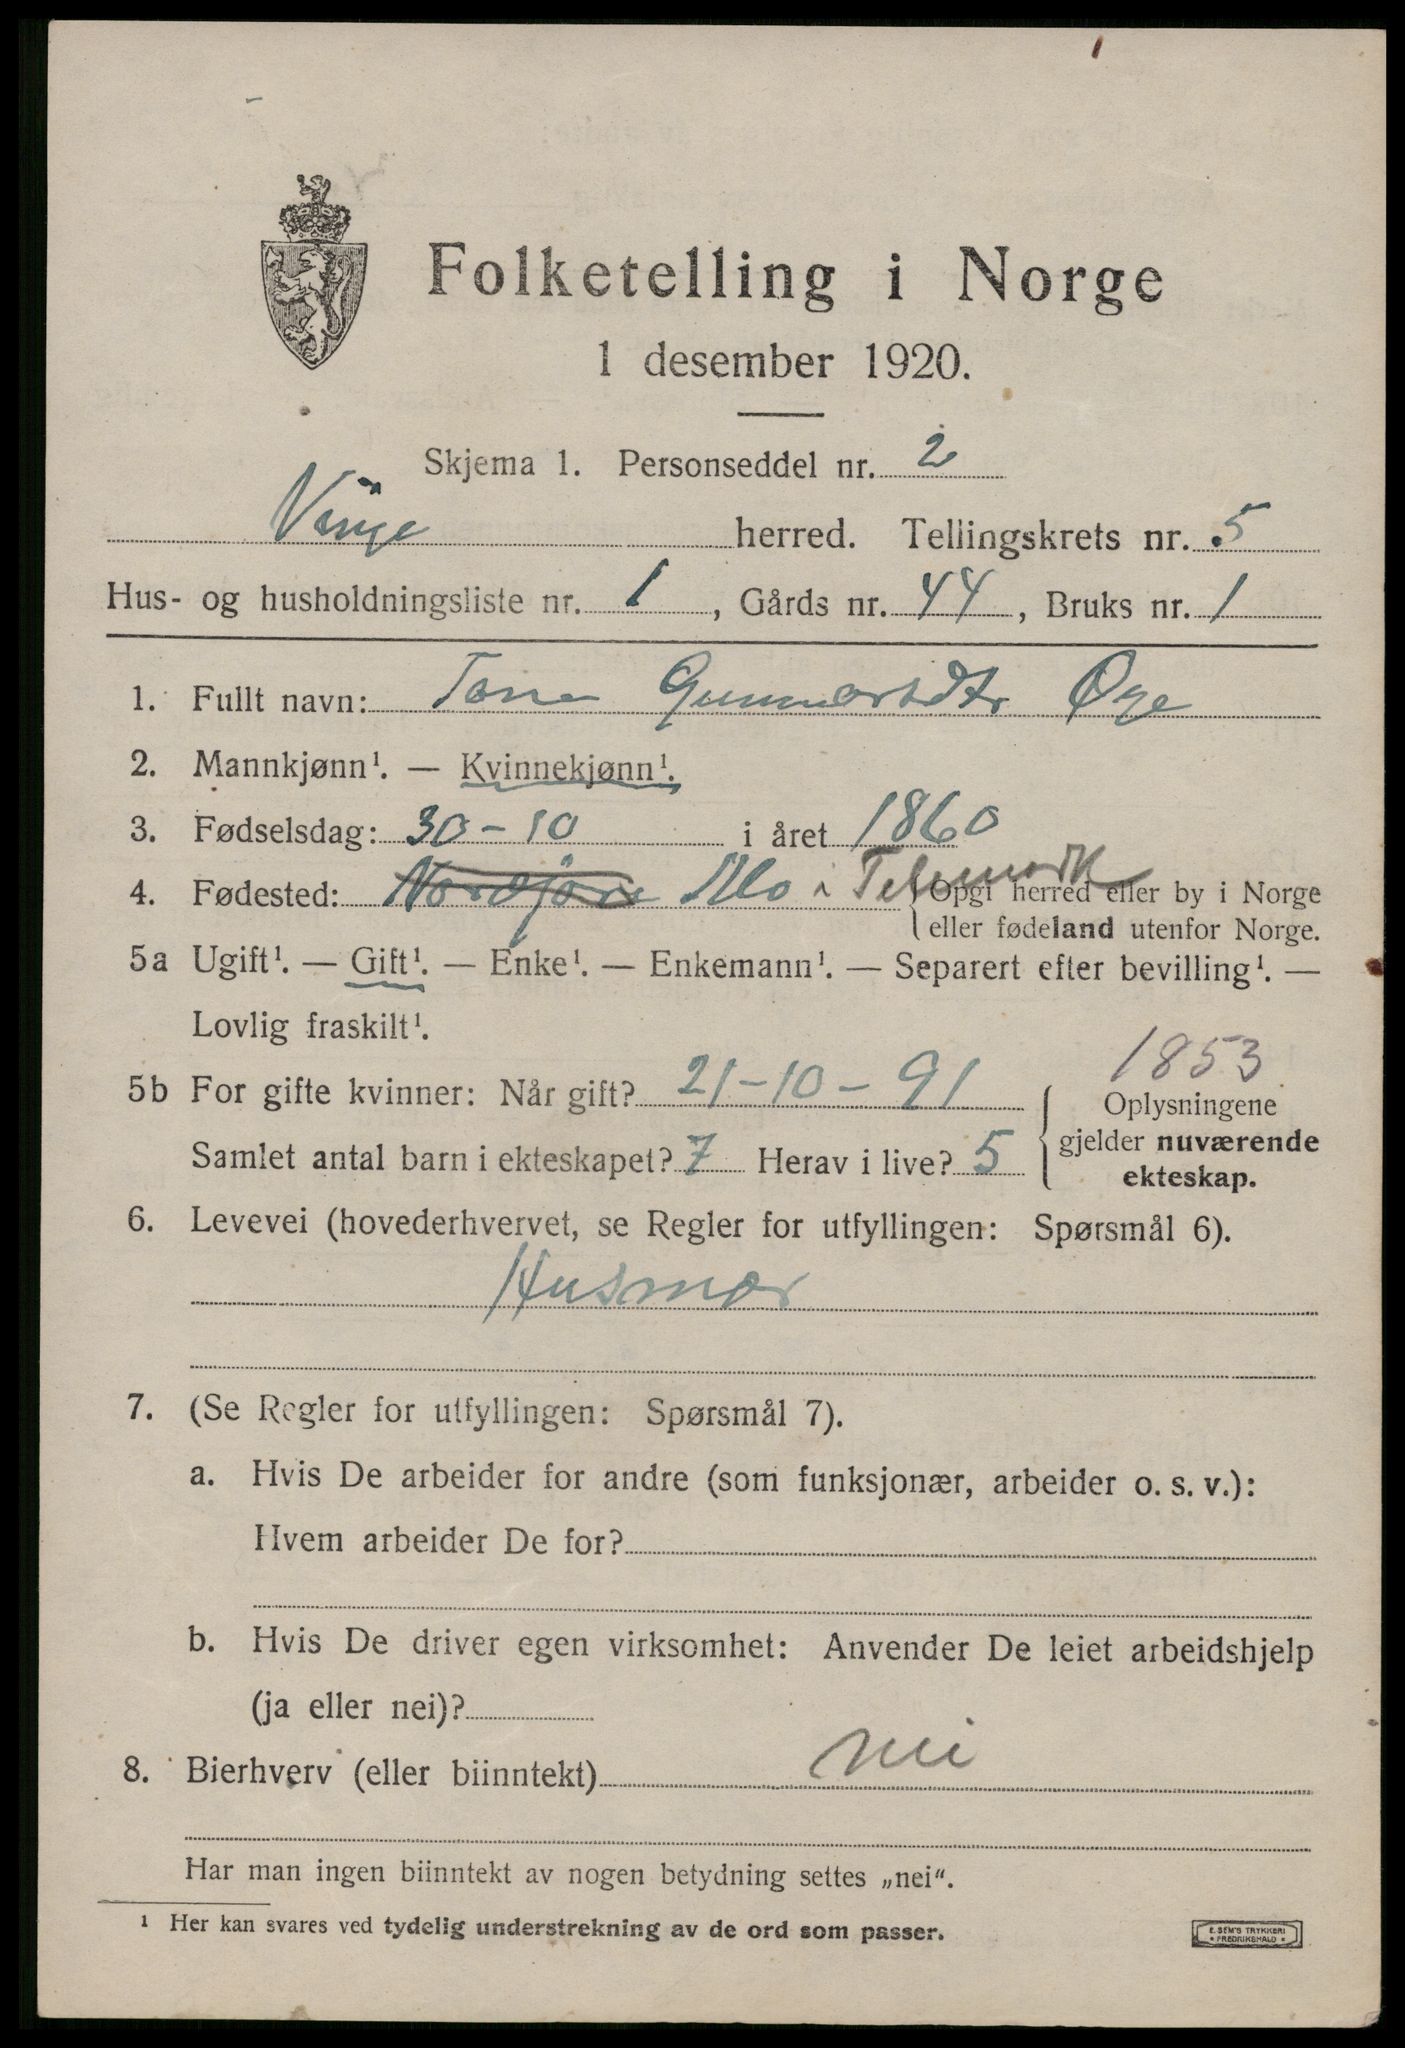 Folketelling i Norge
1 desember 1920.
Skjema 1. Personseddel nr. 2
Vinje herred. Tellingskrets nr. 5
Hus- og husholdningsliste nr. 1, Gårds nr. 44, Bruks nr. 1
1. Fullt navn: Tone Gunnarsdtr Øye
2. Mannkjønn¹. — Kvinnekjønn¹.
3. Fødselsdag: 30-10 i året 1860
4. Fødested: Mo i Telemark {Opgi herred eller by i Norge
eller fødeland utenfor Norge.
5a Ugift¹. — Gift¹. — Enke¹. — Enkemann¹. — Separert efter bevilling¹. —
Lovlig fraskilt¹.
1853
5b For gifte kvinner: Når gift? 21-10-91 { Oplysningene
gjelder nuværende
ekteskap.
Samlet antal barn i ekteskapet? 7 Herav i live? 5
6. Levevei (hovederhvervet, se Regler for utfyllingen: Spørsmål 6).
Husmor
7. (Se Regler for utfyllingen: Spørsmål 7).
a. Hvis De arbeider for andre (som funksjonær, arbeider o. s. v.):
Hvem arbeider De for?
b. Hvis De driver egen virksomhet: Anvender De leiet arbeidshjelp
(ja eller nei)?
8. Bierhverv (eller biinntekt) nei
Har man ingen biinntekt av nogen betydning settes „nei“.
¹ Her kan svares ved tydelig understrekning av de ord som passer.
E. SEM'S TRYKKERI
* FREDRIKSHALD *